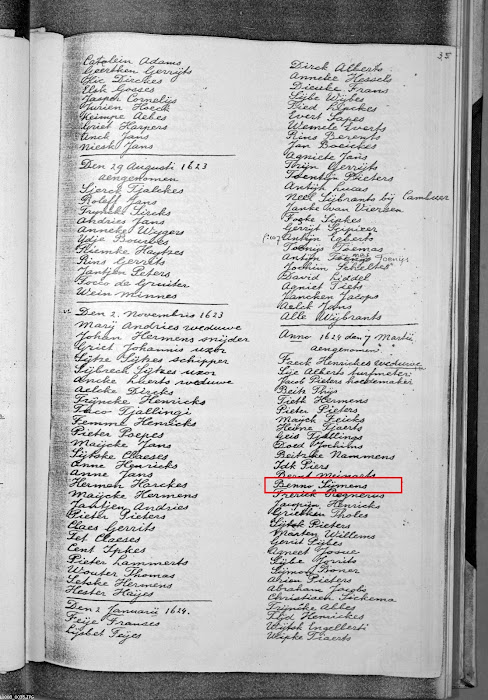 35
Catolein Adams
Geertken Gerrijts
Elck Gosses
Jasper Cornelijs
Jurien Hoeck
Reimpe Aebes
Griet Harpers
Anck Jans
Niesk Jans
Den 29 Augusti 1623
aengenomen
Sjerck Tjalckes
Roleff Jans
Trijneke Siercks
Andries Jans
Anneke Weijgers
Ydje Bouwes
Riemke Haijtzes
Rins Gerrits
Jantjen Peters
Focco de Gruiter
Wein Minnes
Den 2. Novembris 1623
Marij Andries weduwe
Johan Hermens snijder
Griet Johannis uxor
Sijtze Sijkes schipper
Sijbrech Sijkes uxor
Ancke Luerts weduwe
Aelcke Diercks
Trijncke Henricks
Taco Tjallingi
Femme Henricks
Pieter Poepes
Maijcke Jans
Sijtske Claeses
Anne Henricks
Anna Jans
Hermen Harckes
Maijcke Hermens
Jantjen Andries
Pieter Pieters
Claes Gerrits
Jet Claeses
Cent Sipkes
Pieter Lammerts
Wouter Thomas
Letske Hermens
Hester Haijes
Den 2 Januarii 1624.
Feije Franses
Lijsbet Feijes
Dirck Alberts
Anneke Hessels
Dieuke Frans
Sijbe Wijbes
Evert Sapes
Wemele Everts
Rins Berents
Jan Boeickes
Agniete Jans
Thijn Gerrijts
Toentjen Pieters
Antijn Lucas
Neel Sijbrants bij Cambuer
Janke van Viersen
Focke Sipkes
Gerrijt
Antijn Egberts
Toenijs Toemas
Antijn Toenijs
Jochim
David Liddel
Agniet Piets
Jancken Jacops
Aelck Jans
Alle Wijbrants
Anno 1624 den 7 Martij
aengenomen
Faeck Henrickes weduwe
Sije Alberts turfmeter
Jacob Pieters hoedemaker
Beits Thijs
Tieth Hermens
Pieter Pieters
Maijck Feickes
Heine Tjaerts
Geis Tjallings
Doed Jochims
Beitzke Nammens
Idt Piers
Berent Meinerts
Benno Sijmens
Frerick Regnerus
Henricks
Grietken Tholes
Sijtok Pieters
Marten Willems
Gerrit Piebes
Agneet Josue
Sijbe Jorrits
Sijmon Boner
Arien Pieters
Abraham Jacobs
Christiaen Sickema
Trijneke Abbes
Tijd Hemickes
Wijtsk Engelberti
Wipke Tiaerts